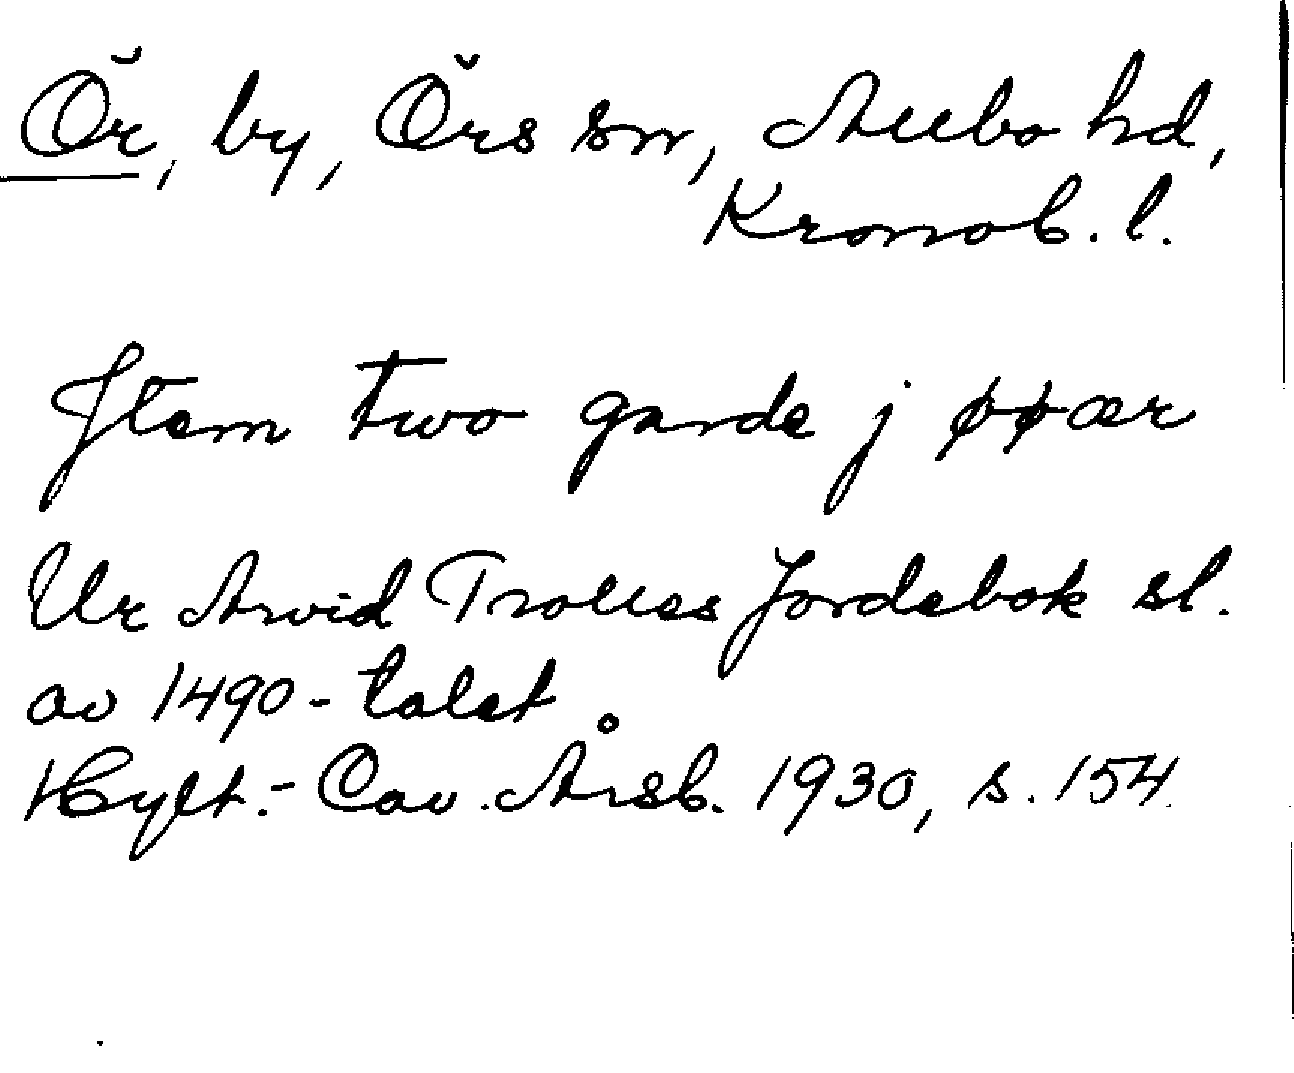 Ör, by, Örs sn, Allbo hd,
Kronob. l.
Jtem two garde j øøær
Ur Arvid Trolles Jordebok sl.
av 1490-talet
Hylt.-Cav. Årsb. 1930, s. 154.